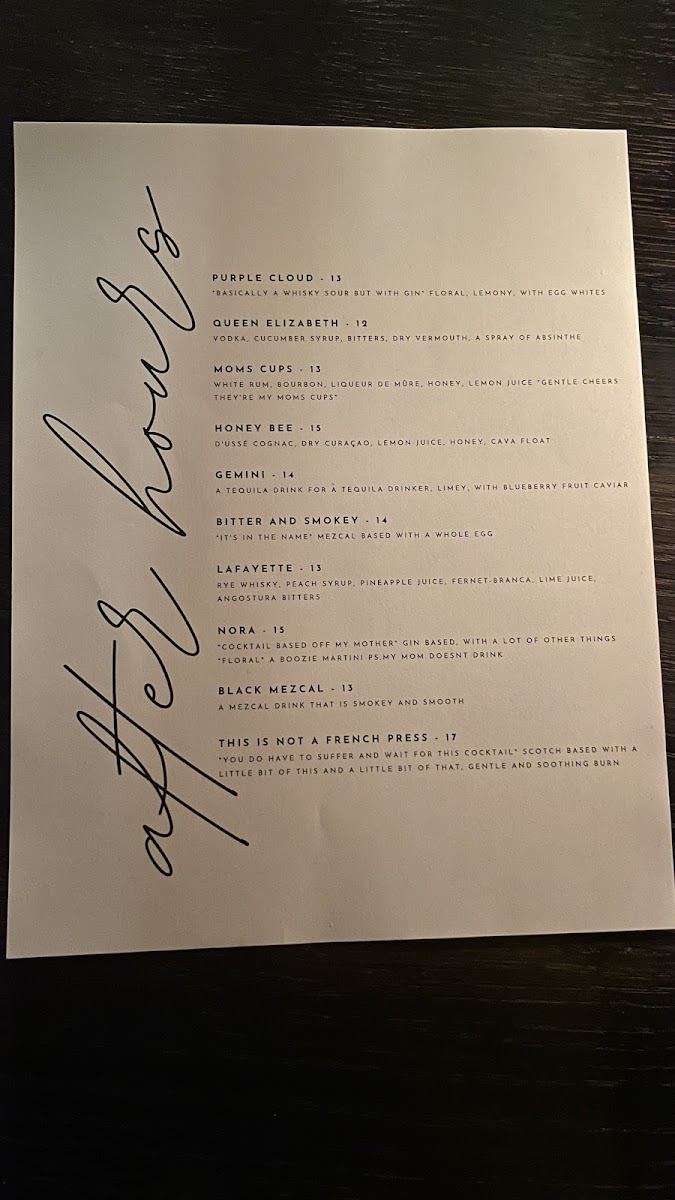 after hours
PURPLE CLOUD - 13
"BASICALLY A WHISKY SOUR BUT WITH GIN" FLORAL, LEMONY, WITH EGG WHITES
QUEEN ELIZABETH - 12
VODKA, CUCUMBER SYRUP, BITTERS, DRY VERMOUTH, A SPRAY OF ABSINTHE
MOMS CUPS - 13
WHITE RUM, BOURBON, LIQUEUR DE MÛRE, HONEY, LEMON JUICE "GENTLE CHEERS
THEY'RE MY MOMS CUPS"
HONEY BEE - 15
D'USSÉ COGNAC, DRY CURAÇAO, LEMON JUICE, HONEY, CAVA FLOAT
GEMINI - 14
A TEQUILA DRINK FOR A TEQUILA DRINKER, LIMEY, WITH BLUEBERRY FRUIT CAVIAR
BITTER AND SMOKEY - 14
"IT'S IN THE NAME" MEZCAL BASED WITH A WHOLE EGG
LAFAYETTE - 13
RYE WHISKY, PEACH SYRUP, PINEAPPLE JUICE, FERNET-BRANCA, LIME JUICE,
ANGOSTURA BITTERS
NORA - 15
"COCKTAIL BASED OFF MY MOTHER" GIN BASED, WITH A LOT OF OTHER THINGS
"FLORAL" A BOOZIE MARTINI PS.MY MOM DOESNT DRINK
BLACK MEZCAL - 13
A MEZCAL DRINK THAT IS SMOKEY AND SMOOTH
THIS IS NOT A FRENCH PRESS - 17
"YOU DO HAVE TO SUFFER AND WAIT FOR THIS COCKTAIL" SCOTCH BASED WITH A
LITTLE BIT OF THIS AND A LITTLE BIT OF THAT, GENTLE AND SOOTHING BURN